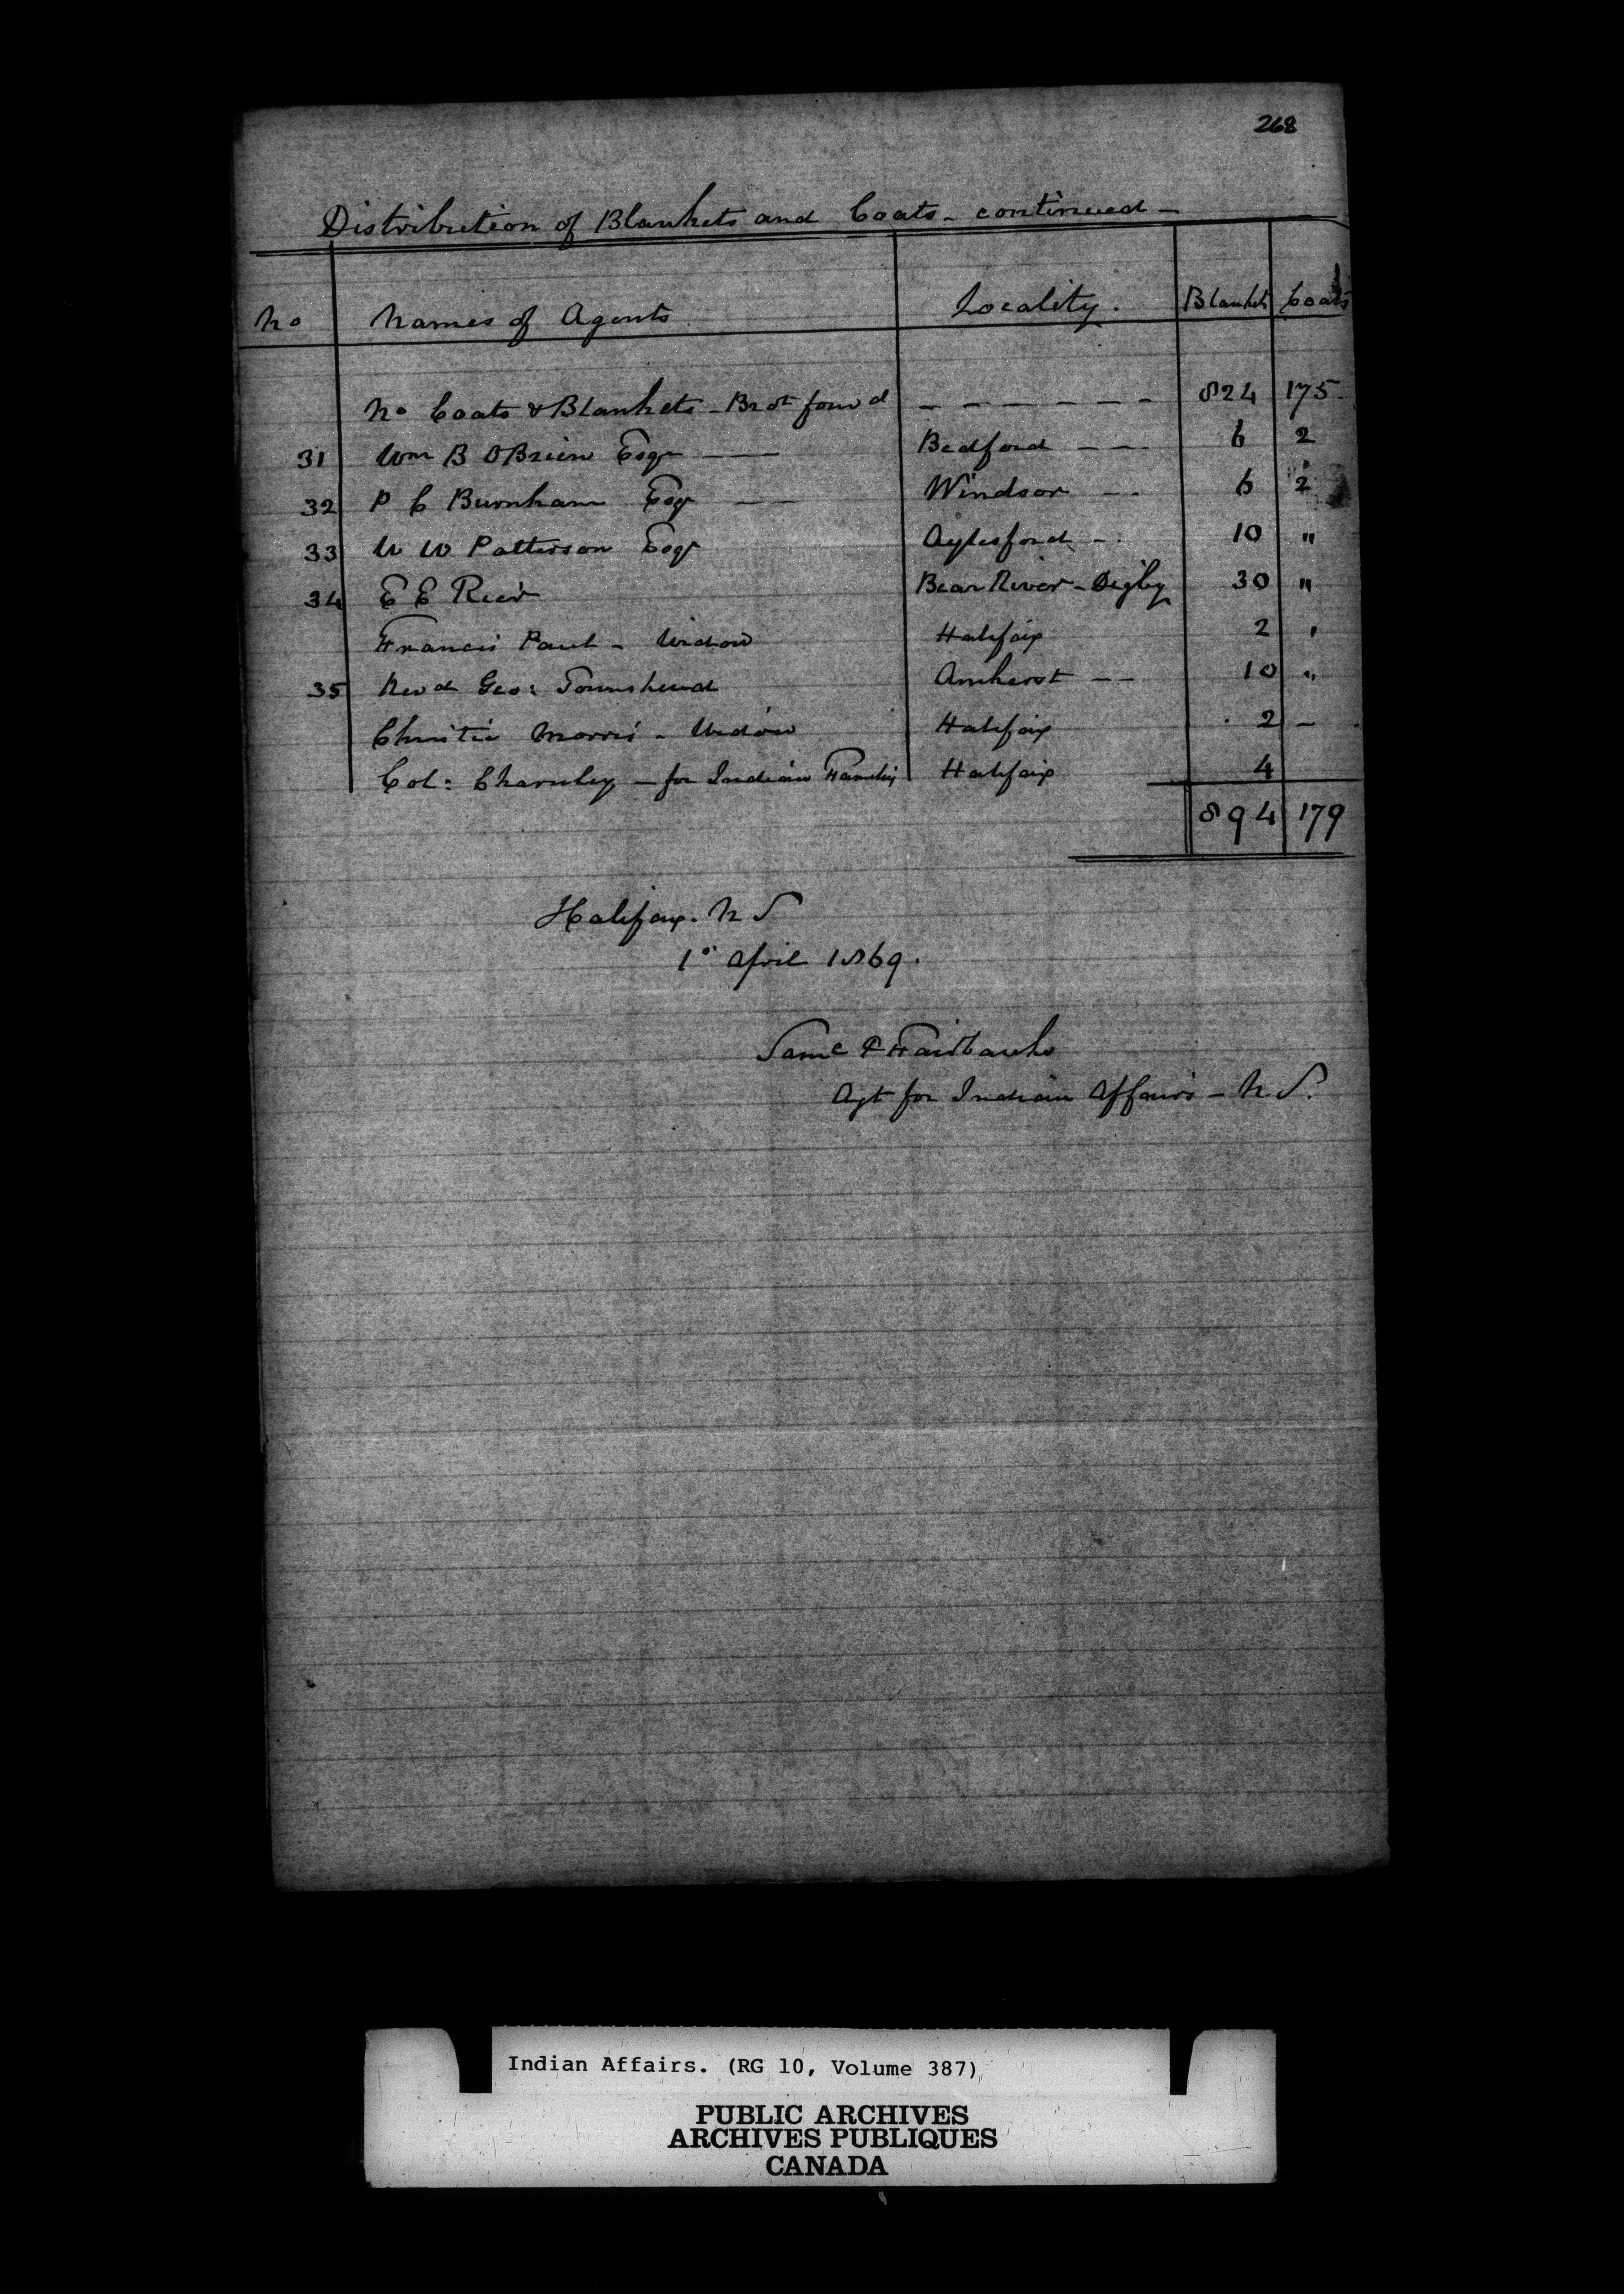 268
Distribution of Blankets and Coats - continued -
No Names of Agents Locality. Blankets Coats
No Coats & Blankets - Brot forwd - - - - - - 824 175
31 Wm B OBrien Esqr — Bedford - - - 6 2
32 P C Burnham Esqr — — Windsor - - 6 2
33 W W Patterson Esqr Aylesford - - 10 "
34 E E Reid Bear River - Digby 30 "
Francis Paul - Widow Halifax 2 "
35 Revd Geo: Townshend Amherst - - 10 "
Christie Morris - Widow Halifax 2 -
Col: Charnley - for Indian Families Halifax 4
894 179
Halifax. N S
1° April 1869.
Saml P Fairbanks
Agt for Indian Affairs - N S.
Indian Affairs. (RG 10, Volume 387)
PUBLIC ARCHIVES
ARCHIVES PUBLIQUES
CANADA